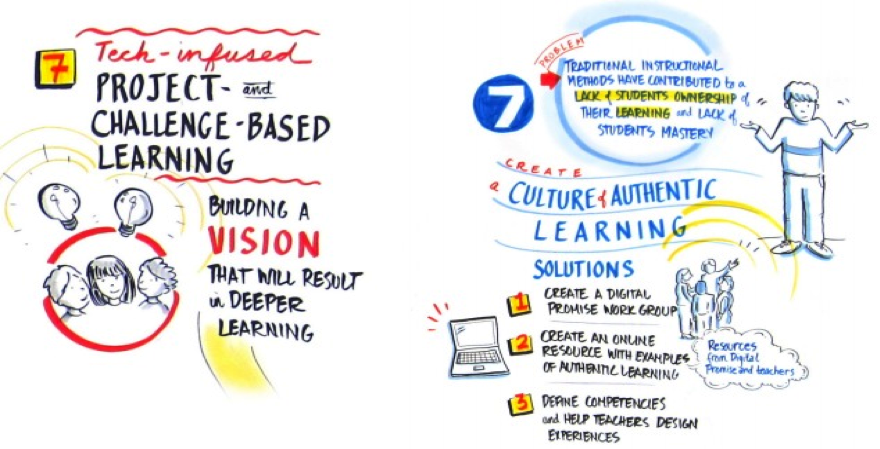 7
Tech-infused
PROJECT- and
CHALLENGE-BASED
LEARNING
BUILDING A
VISION
THAT WILL RESULT
in DEEPER
LEARNING
7
PROBLEM
TRADITIONAL INSTRUCTIONAL
METHODS HAVE CONTRIBUTED to a
LACK of STUDENTS OWNERSHIP of
THEIR LEARNING and LACK of
STUDENTS MASTERY
CREATE
a CULTURE of AUTHENTIC
LEARNING
SOLUTIONS
1 CREATE A DIGITAL
PROMISE WORK GROUP
2 CREATE AN ONLINE
RESOURCE WITH EXAMPLES
OF AUTHENTIC LEARNING
Resources
from Digital
Promise and teachers
3 DEFINE COMPETENCIES
and HELP TEACHERS DESIGN
EXPERIENCES